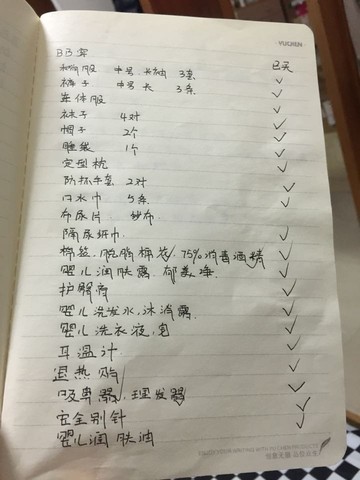 YUCXEN
BB 衣
已买
和尚服 中号 长袖 3套
裤子 中号 长 3条
连体服
袜子 4对
帽子 2个
睡袋 1个
定型枕
防抓手套 2对
口水巾 5条
布尿片 纱布
隔尿纸巾
棉签,脱脂棉花,75%消毒酒精
婴儿润肤露,郁美净
护臀膏
婴儿洗发水,沐浴露
婴儿洗衣液,皂
耳温计
退热贴
吸鼻器,理发器
安全别针
婴儿润肤油